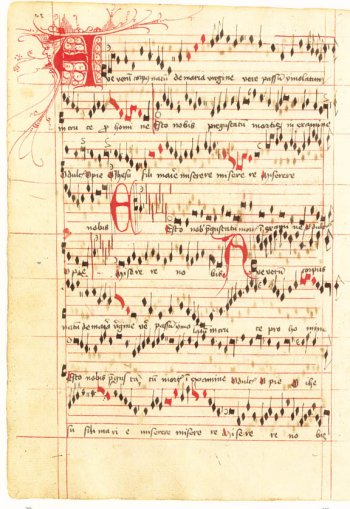 Ave verū corpus natū de maria virgine vere passū ymolatum
in cru ce p homi ne Esto nobis pregustatū mortis in examine
O dulcis O pie O Jhesu fili marie miserere miserere re Miserere
nobis Esto nob pgustatū mort i exami ne O dulc
O pie Miserere re no bis Ave verū corpus
natū de maria virgine ve passū ymo latū in cru ce pro ho mine
Esto nobis pgus ta tū mort i examine O dulc O pie O ihe
su fili ma ri e miserere misere re Misere re no bis